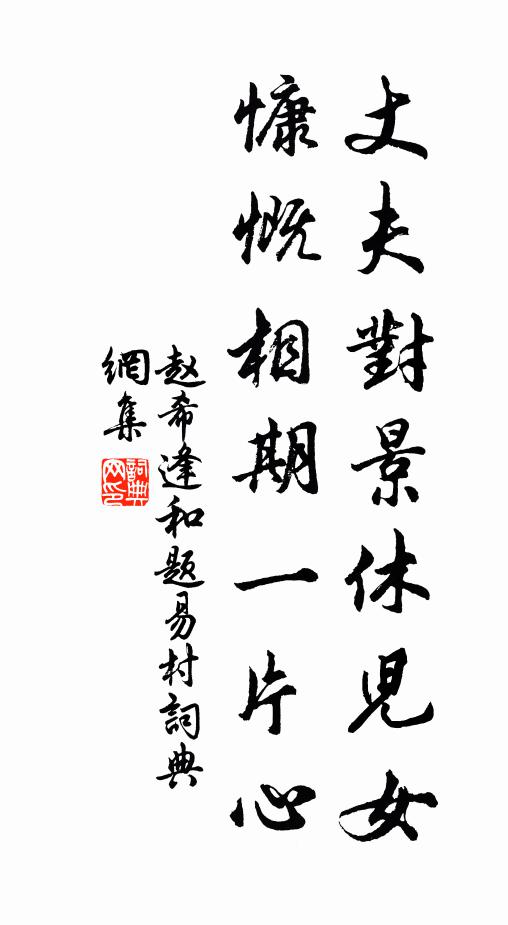 丈夫對景休児女
慷慨相期一片心
赵希逢和题易村詞典
網集
詞典網印